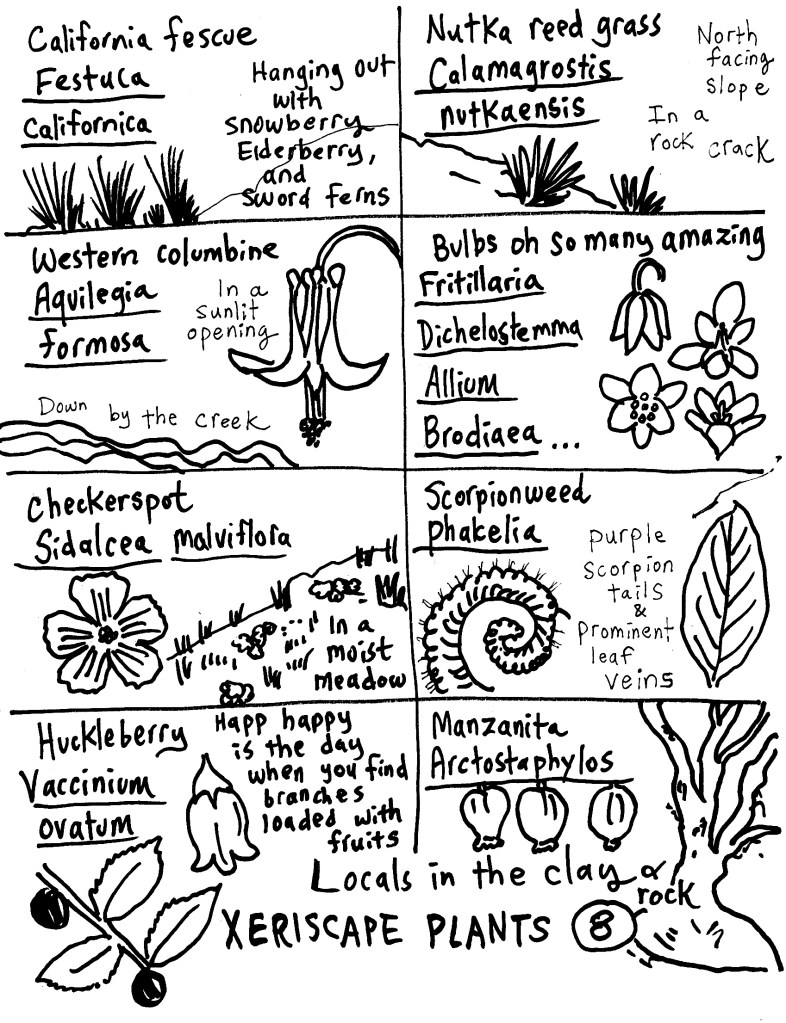 California fescue
Festuca
Californica
Hanging out
with
snowberry
Elderberry,
and
sword ferns
Nutka reed grass
Calamagrostis
nutkaensis
North
facing
slope
In a
rock crack
Western columbine
Aquilegia
formosa
In a
sunlit
opening
Down by the creek
Bulbs oh so many amazing
Fritillaria
Dichelostemma
Allium
Brodiaea ...
Checkerspot
Sidalcea malviflora
In a
moist
meadow
Scorpionweed
Phakelia
purple
scorpion
tails
&
prominent
leaf
veins
Huckleberry
Vaccinium
ovatum
Happ happy
is the day
when you find
branches
loaded with
fruits
Manzanita
Arctostaphylos
Locals in the clay &
rock
XERISCAPE PLANTS 8